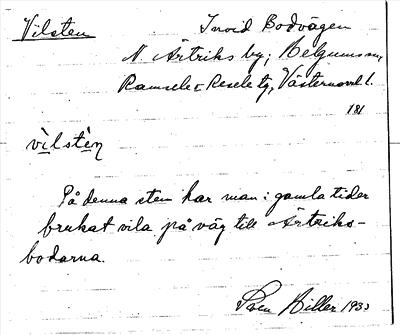 Vilsten
Invid Bodvägen
N. Ärtriks by; Helgumssn,
Ramsele o. Resele tg, Västernorrl l.
181
vìlstèn
På denna sten har man i gamla tider
brukat vila på väg till Ärtriks-
bodarna.
Sven Hiller 1933